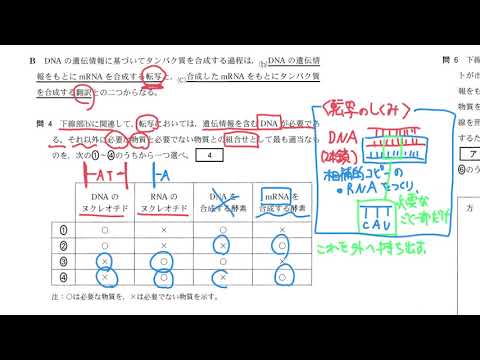 B DNAの遺伝情報に基づいてタンパク質を合成する過程は，(b)DNAの遺伝情
報をもとにmRNAを合成する転写と，(c)合成したmRNAをもとにタンパク質
を合成する翻訳との二つからなる。
問4 下線部bに関連して，転写においては，遺伝情報を含むDNAが必要であ
る。それ以外に必要な物質と必要でない物質との組合せとして最も適当なも
のを，次の①～④のうちから一つ選べ。 4
AT A
DNAの ヌクレオチド RNAの ヌクレオチド DNAを 合成する酵素 mRNAを 合成する酵素
① ○ × ○ ×
② ○ × × ○
③ × ○ ○ ×
④ × ○ × ○
注：○は必要な物質を，×は必要でない物質を示す。
〈転写のしくみ〉
DNA
(2本鎖)
相補的コピーの
RNAをつくり、
必要な
とこ一部だけ
CAU
これを外へ持ち出す。
問6 下線
トがホ
報をも
物質を
線を形
するた
ア
⑥のう
方